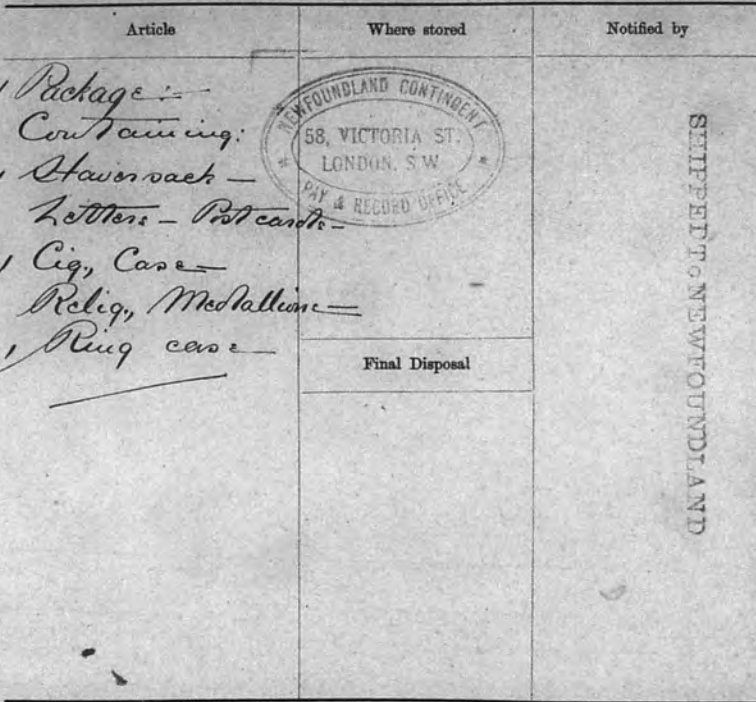 Article
Where stored
Notified by
1 Package:-
Containing:
1 Haversack -
Letters - Postcards -
1 Cig., Case -
Relig., Medallions -
1 Ring case -
NEWFOUNDLAND CONTINGENT
58, VICTORIA ST.
LONDON, S.W.
PAY & RECORD OFFICE
Final Disposal
SHIPPED To NEWFOUNDLAND